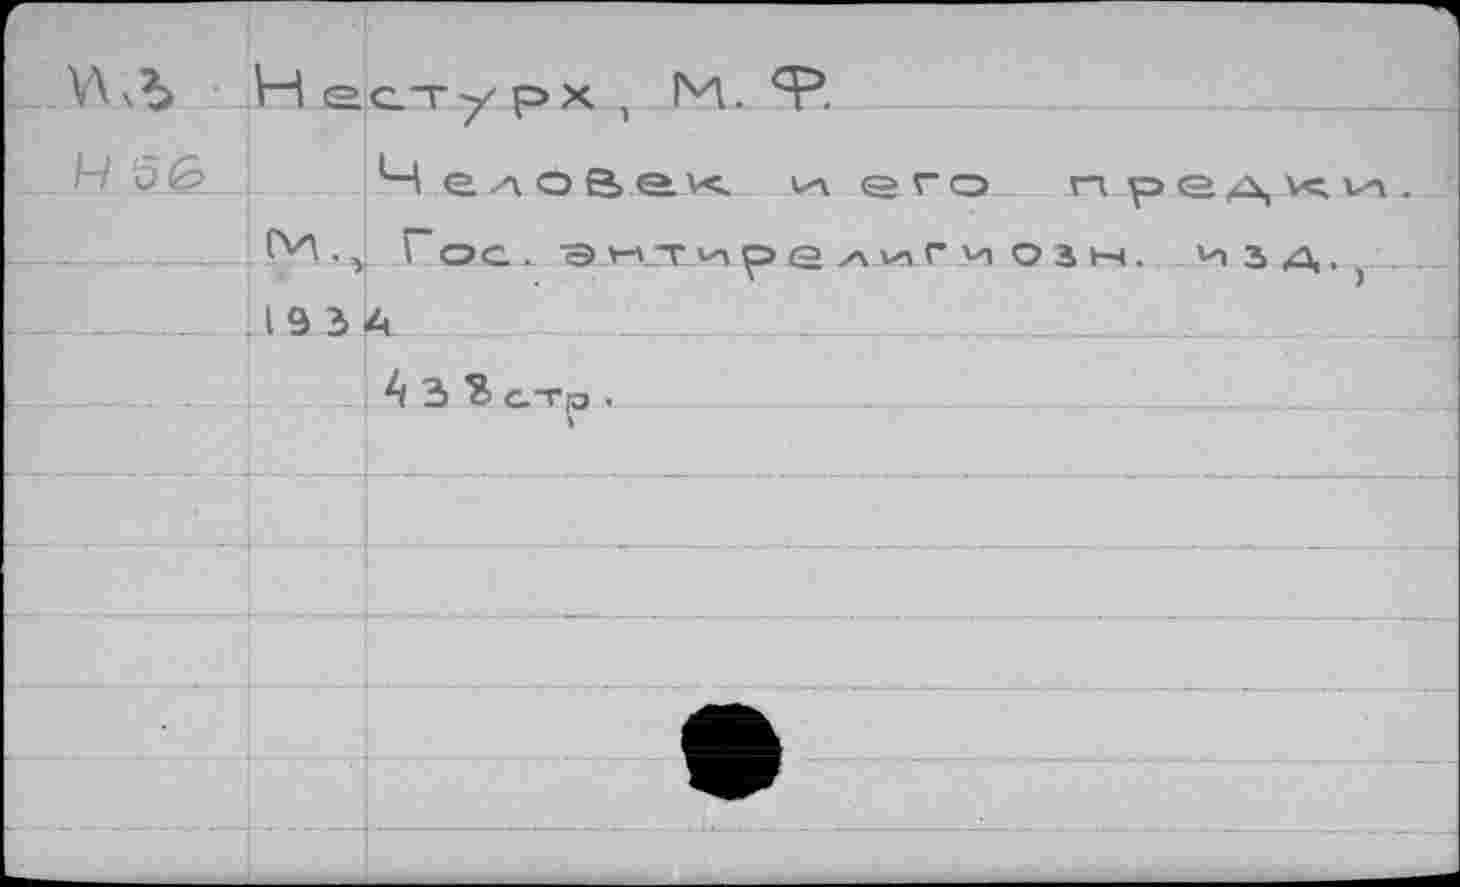 И.3 Нестурх, М. Ф.
Н 56 Человек и его предки.
М., Гос. энтирелигиозн. изд.,
1934
438 стр.